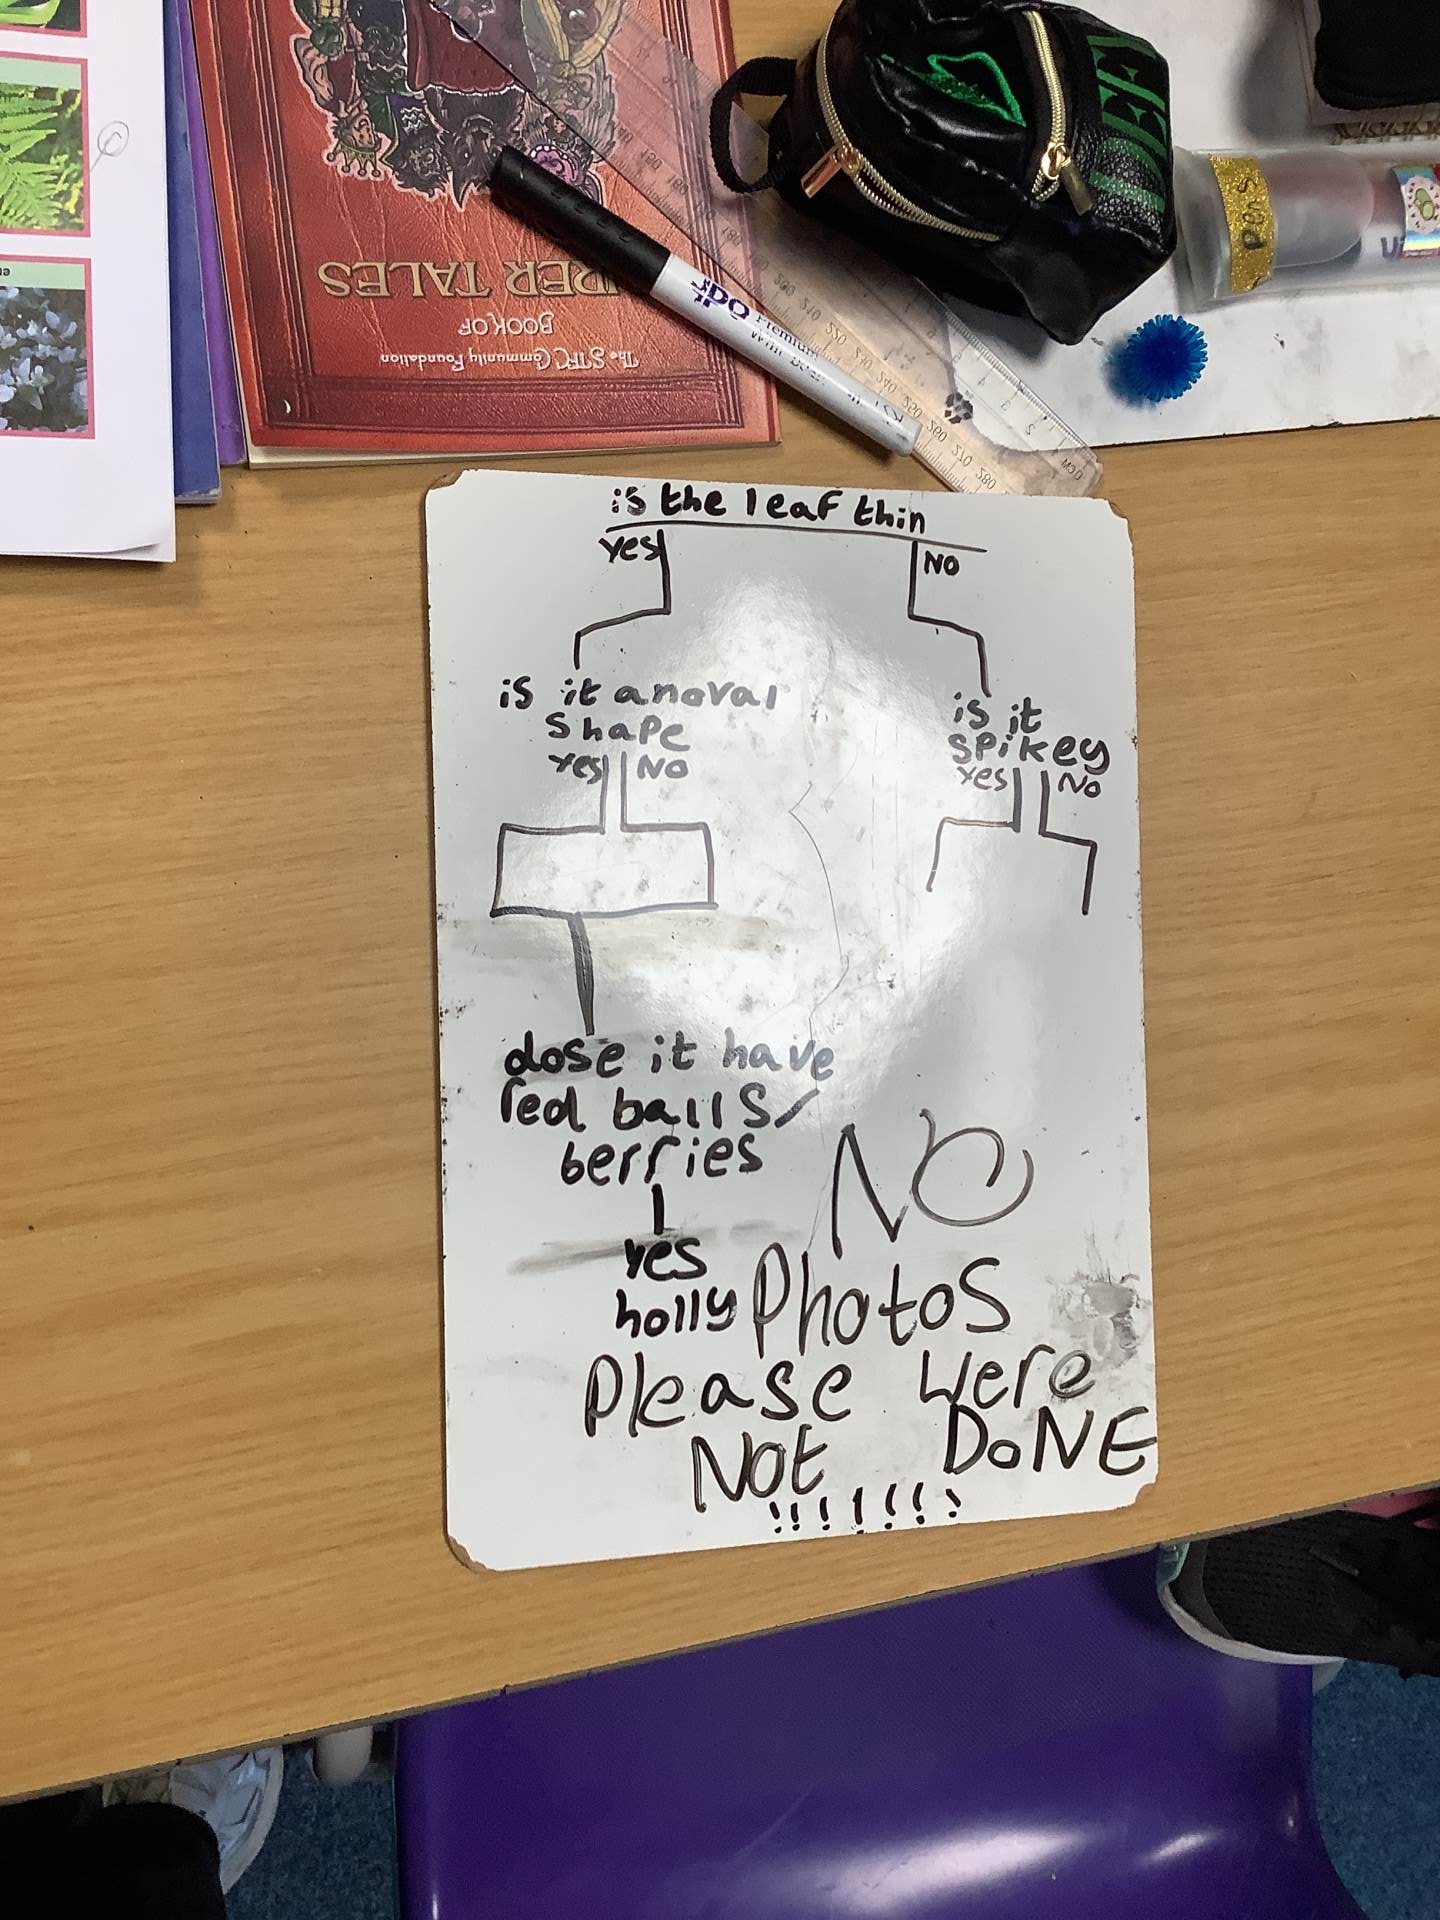 The STFC Community Foundation
BOOK OF
TALES
Premium
Pens
is the leaf thin
yes
NO
is it an oval
shape
yes NO
is it
spikey
yes No
dose it have
red balls/
berries
yes
holly
NO
Photos
Please Were
Not DoNE
!!!!!!!